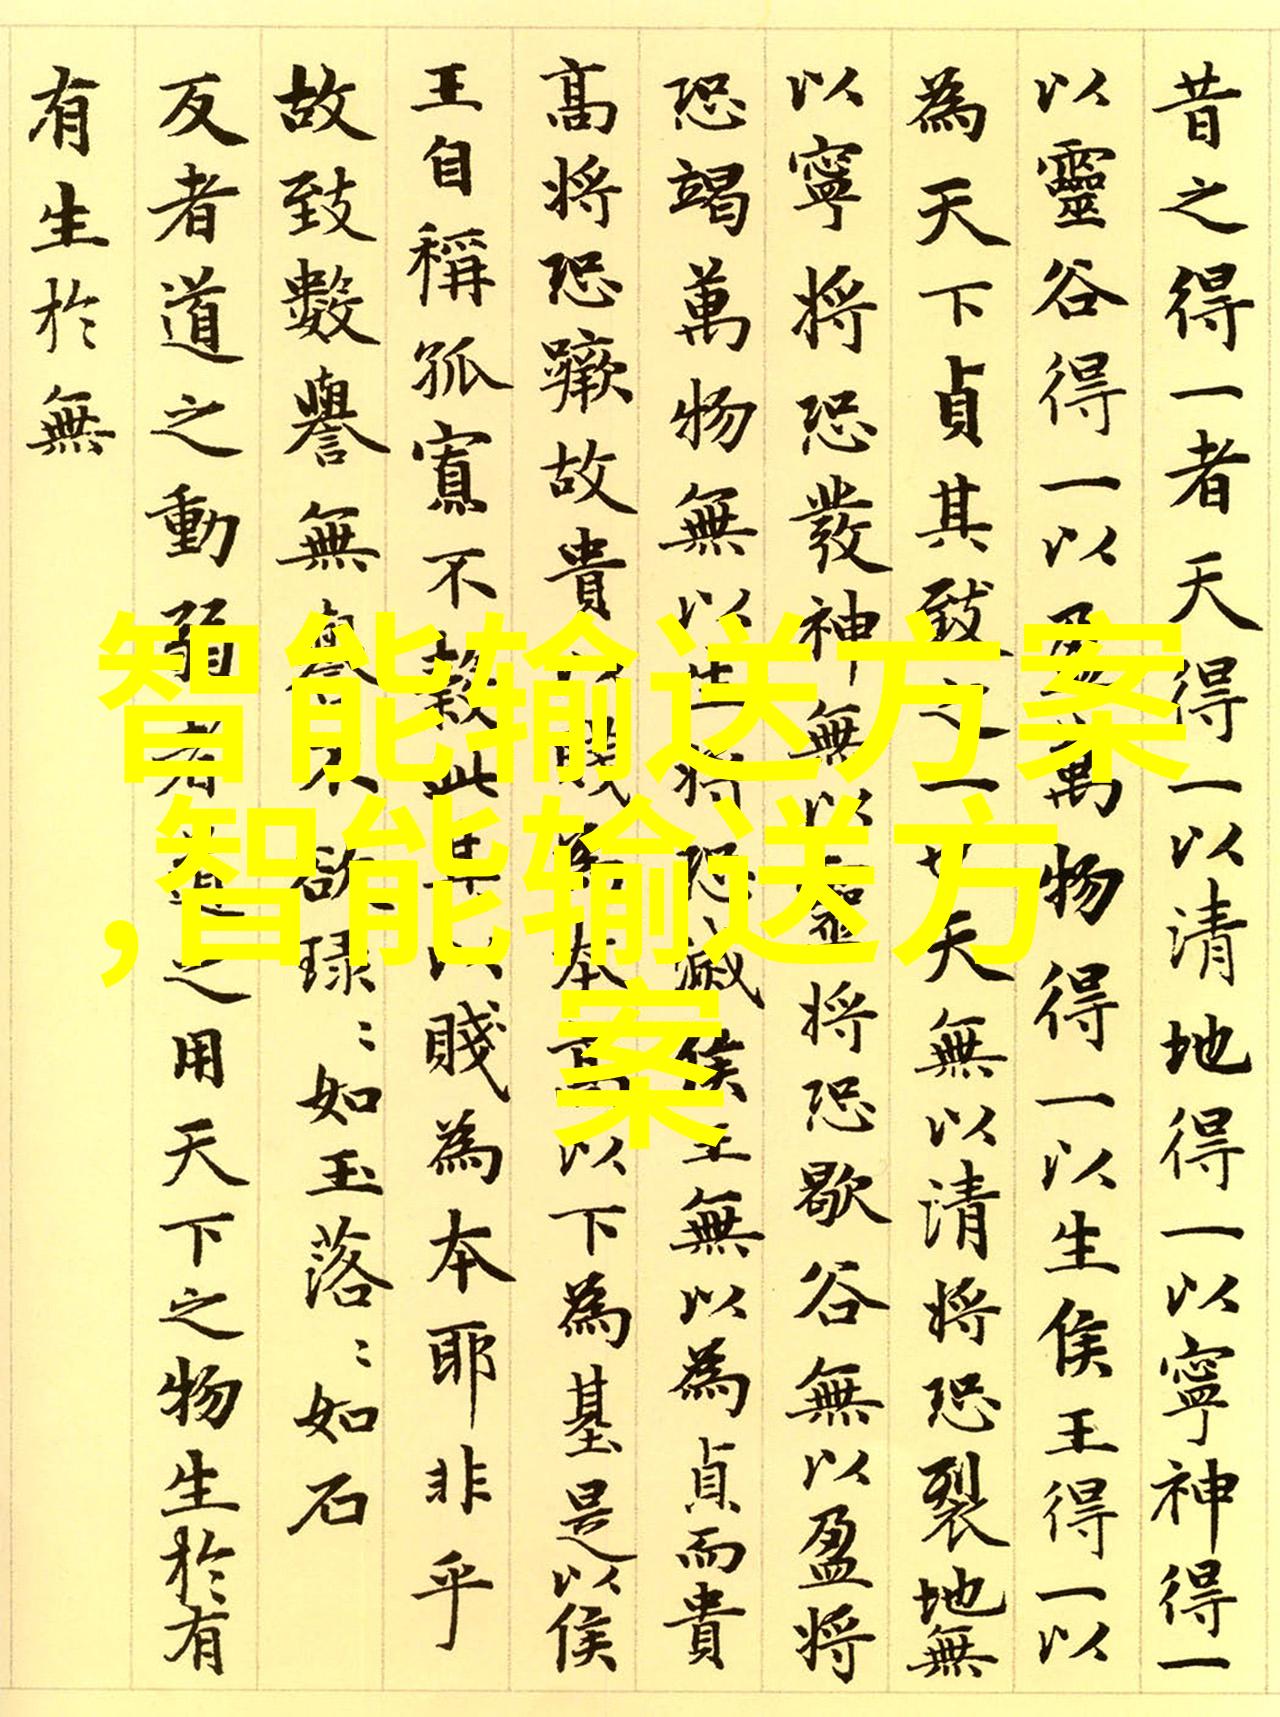 昔之得一者天得一以清地得一以寧神得一
以靈谷得一以盈萬物得一以生侯王得一以
為天下貞其致之一也天無以清將恐裂地無
以寧將恐發神無以靈將恐歇谷無以盈將
恐竭萬物無以生將恐滅侯王無以為貞而貴
高將恐蹶故貴以賤為本高以下為基是以侯
王自稱孤寡不穀此其以賤為本耶非乎
故致數譽無譽不欲琭〻如玉落〻如石
反者道之動弱者道之用天下之物生於有
有生於無
智能输送方案
,智能输送方
案